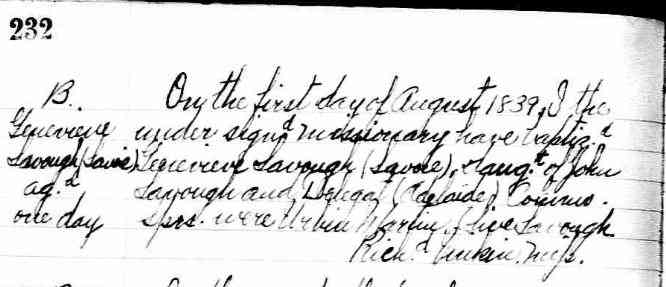 232
B.
Genevieve
Savough (Savoie)
ag.d
one day
On the first day of August 1839, I the
under signd missionary have baptiz.d
Genevieve Savough (Savoie), daug.t of John
Savough and (Adelaide)
sprs. were Urbin Savough
Rich.d Miss.